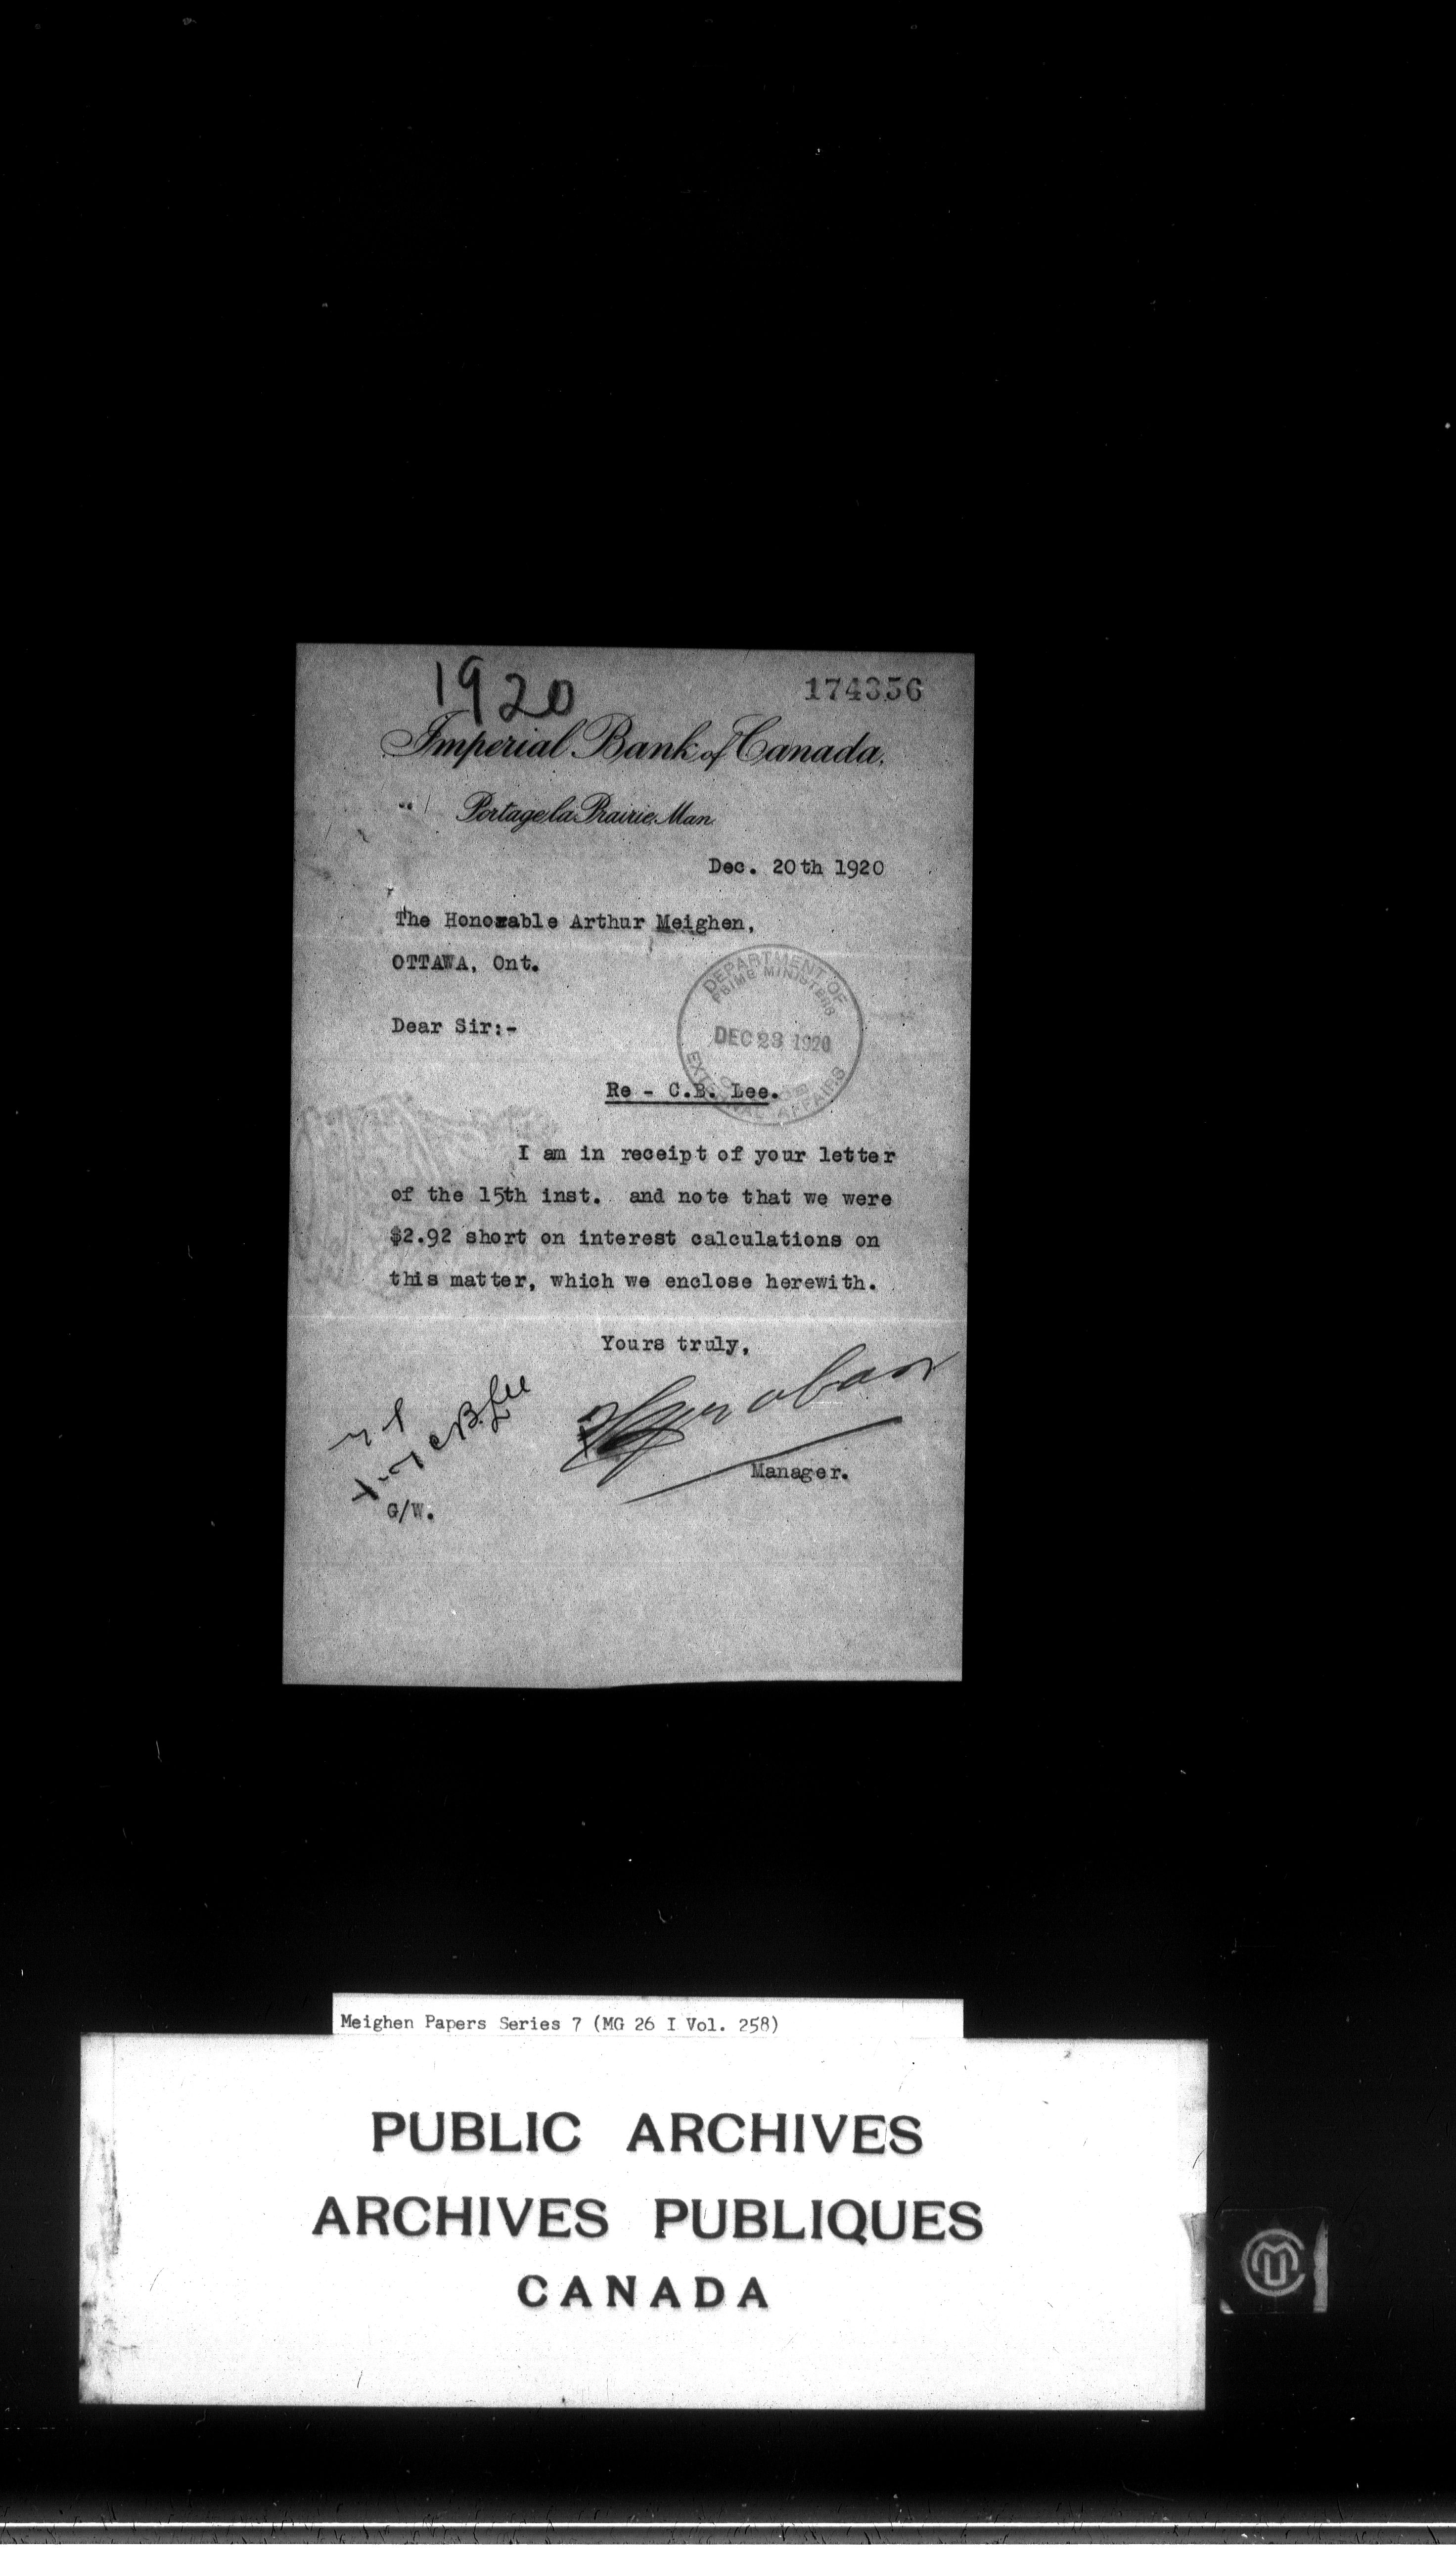 1920
174356
Imperial Bank of Canada,
Portage la Prairie, Man.
Dec. 20th 1920
The Honorable Arthur Meighen,
OTTAWA, Ont.
DEPARTMENT OF
PRIME MINISTERS
DEC 23 1920
EXTERNAL AFFAIRS
Dear Sir:-
Re - C.B. Lee.
I am in receipt of your letter
of the 15th inst. and note that we were
$2.92 short on interest calculations on
this matter, which we enclose herewith.
Yours truly,
C.B. Lee
Manager.
G/W.
Meighen Papers Series 7 (MG 26 I Vol. 258)
PUBLIC ARCHIVES
ARCHIVES PUBLIQUES
CANADA